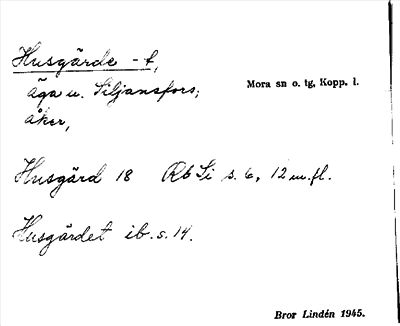 Husgärde -t,
äga u. Siljansfors;
Mora sn o. tg, Kopp. l.
åker,
Husgärd 18 Rb Si s. 6, 12 m.fl.
Husgärdet ib. s. 14.
Bror Lindén 1945.